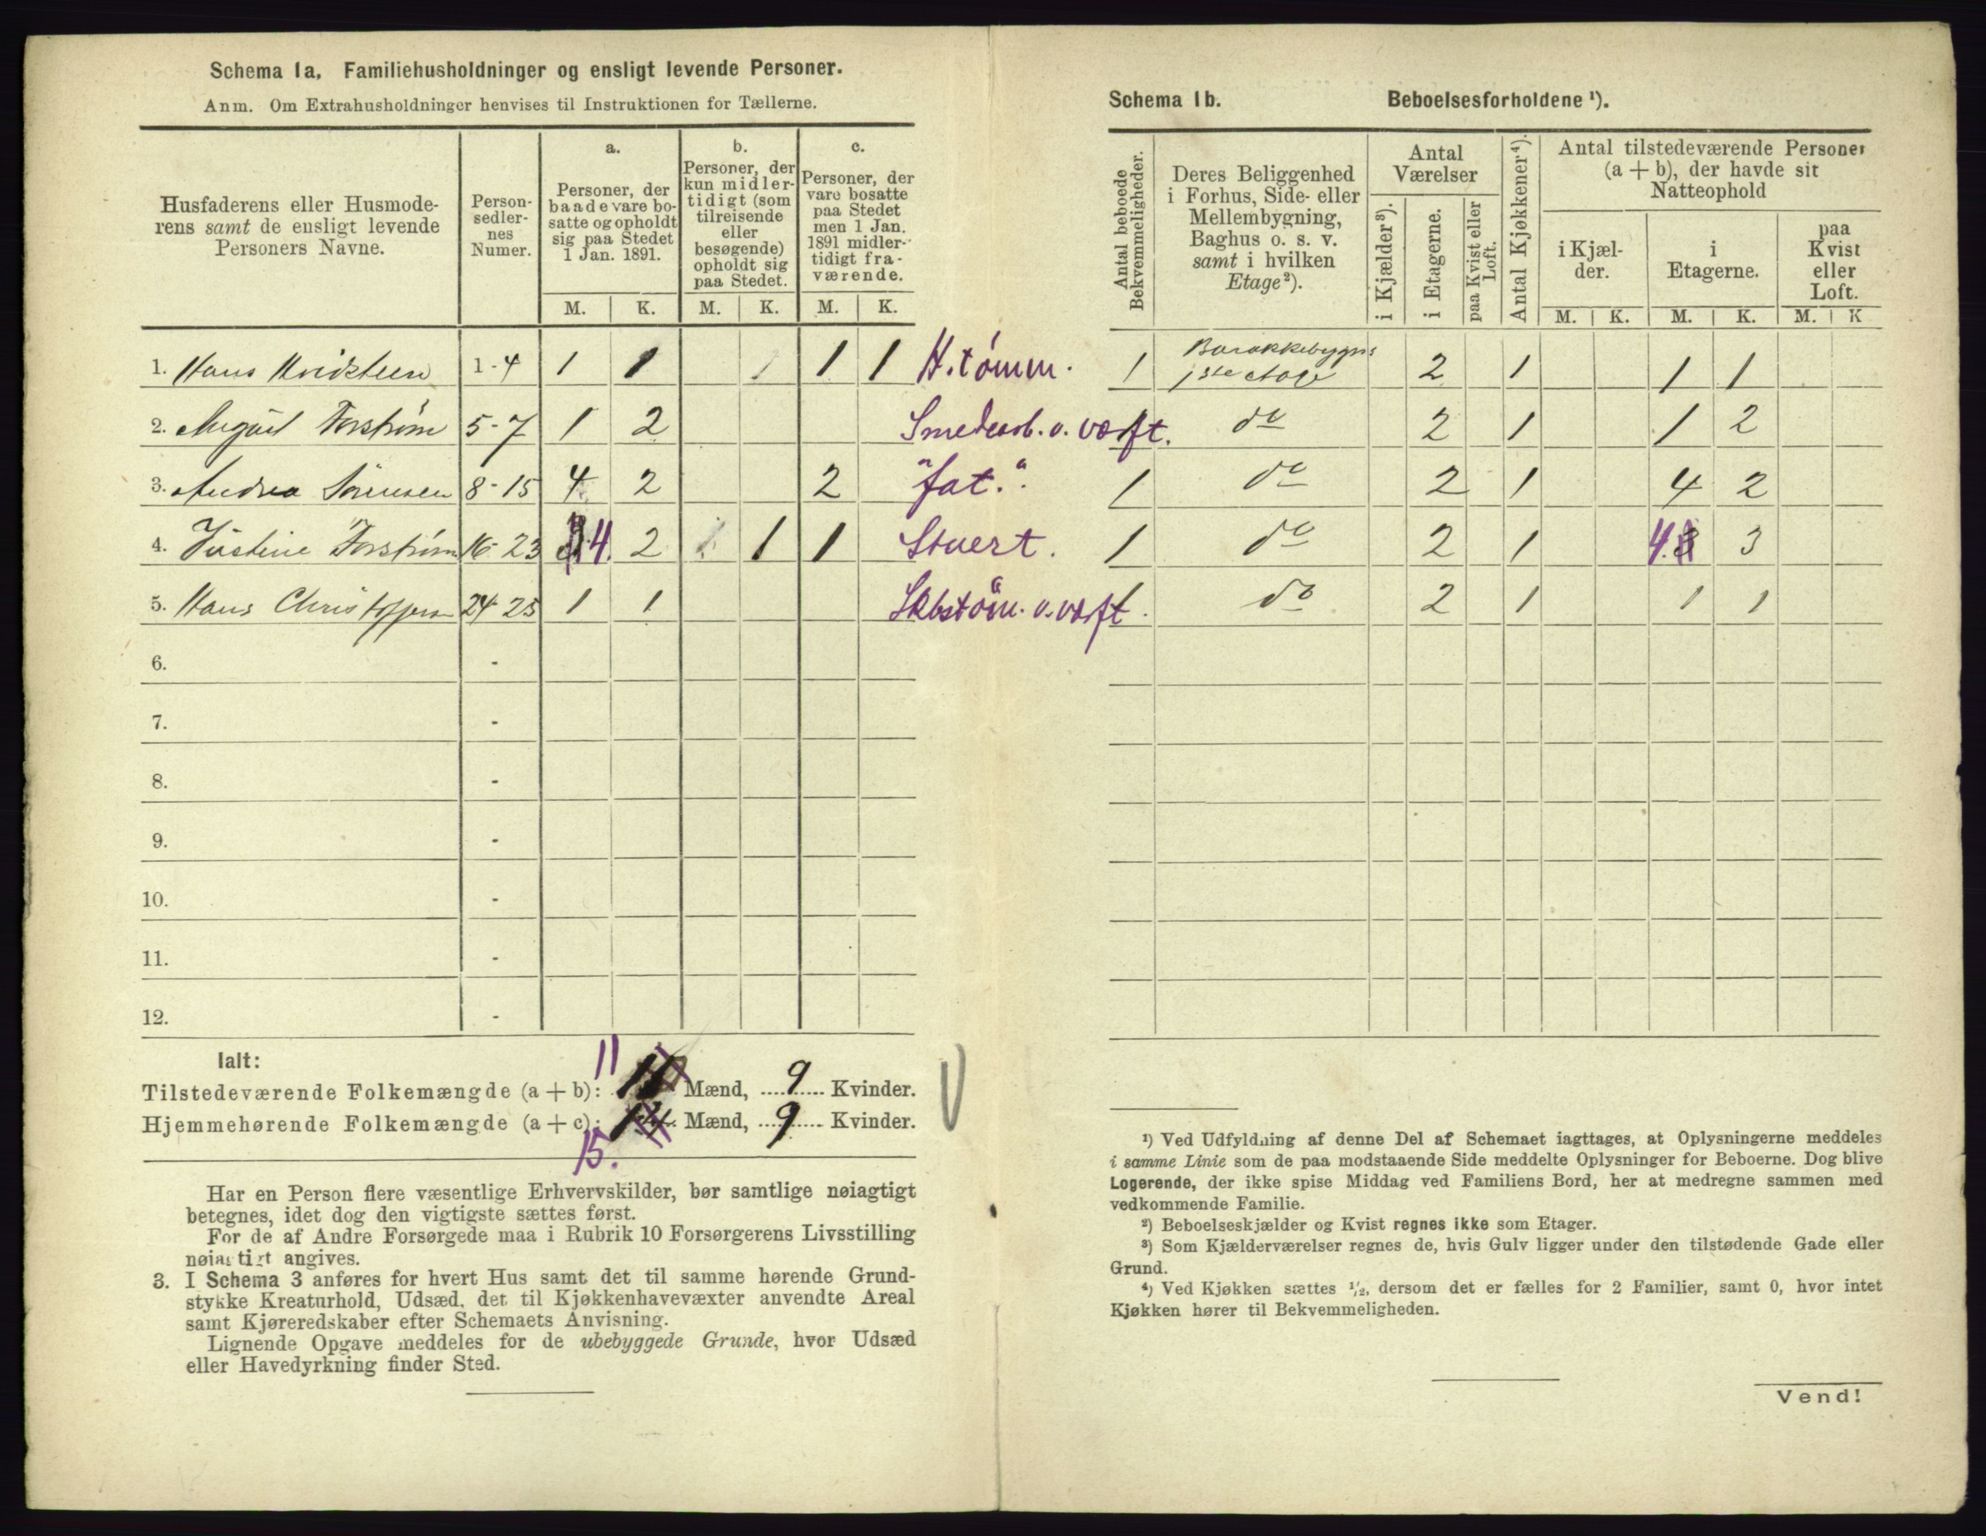 Schema 1a. Familiehusholdninger og ensligt levende Personer.
Anm. Om Extrahusholdninger henvises til Instruktionen for Tællerne.
Husfaderens eller Husmoderens samt de ensligt levende Personers Navne.
Personsedlernes Numer.
a. Personer, der baade vare bosatte og opholdt sig paa Stedet 1 Jan. 1891.
b. Personer, der kun midlertidigt (som tilreisende eller besøgende) opholdt sig paa Stedet.
c. Personer, der vare bosatte paa Stedet men 1 Jan. 1891 midlertidigt fraværende.
M. K. M. K. M. K.
1. Hans Hvidsteen 1-4 1 1 1 1 H.tømm.
2. August Forstrøm 5-7 1 2 Smedearb. v. værft.
3. Andrea Sørensen 8-15 4 2 2 "fat."
4. Justine Forstrøm 16-23 4 2 1 1 Stuert.
5. Hans Christoffersen 24-25 1 1
6. -
7. -
8. -
9. -
10. -
11. -
12. -
Ialt:
Tilstedeværende Folkemængde (a + b): 11 Mænd, 9 Kvinder.
Hjemmehørende Folkemængde (a + c): 15. Mænd, 9 Kvinder.
Har en Person flere væsentlige Erhvervskilder, bør samtlige nøiagtigt
betegnes, idet dog den vigtigste sættes først.
For de af Andre Forsørgede maa i Rubrik 10 Forsørgerens Livsstilling
nøiagtigt angives.
3. I Schema 3 anføres for hvert Hus samt det til samme hørende Grund-
stykke Kreaturhold, Udsæd, det til Kjøkkenhavevæxter anvendte Areal
samt Kjøreredskaber efter Schemaets Anvisning.
Lignende Opgave meddeles for de ubebyggede Grunde, hvor Udsæd
eller Havedyrkning finder Sted.
Schema 1b. Beboelsesforholdene ¹).
Antal beboede Bekvemmeligheder.
Deres Beliggenhed i Forhus, Side- eller Mellembygning, Baghus o. s. v. samt i hvilken Etage ²).
Antal Værelser
i Kjælder ³).
i Etagerne.
paa Kvist eller Loft.
Antal Kjøkkener ⁴).
Antal tilstedeværende Personer (a + b), der havde sit Natteophold
i Kjælder.
i Etagerne.
paa Kvist eller Loft.
M. K. M. K. M. K
1 Barakkebygn: 1ste etage 2 1 1 1
1 do 2 1 1 2
1 do 2 1 4 2
1 do 2 1 4. 3
1 do 2 1 1 1
¹) Ved Udfyldning af denne Del af Schemaet iagttages, at Oplysningerne meddeles
i samme Linie som de paa modstaaende Side meddelte Oplysninger for Beboerne. Dog blive
Logerende, der ikke spise Middag ved Familiens Bord, her at medregne sammen med
vedkommende Familie.
²) Beboelseskjælder og Kvist regnes ikke som Etager.
³) Som Kjælderværelser regnes de, hvis Gulv ligger under den tilstødende Gade eller
Grund.
⁴) Ved Kjøkken sættes ½, dersom det er fælles for 2 Familier, samt 0, hvor intet
Kjøkken hører til Bekvemmeligheden.
Vend!